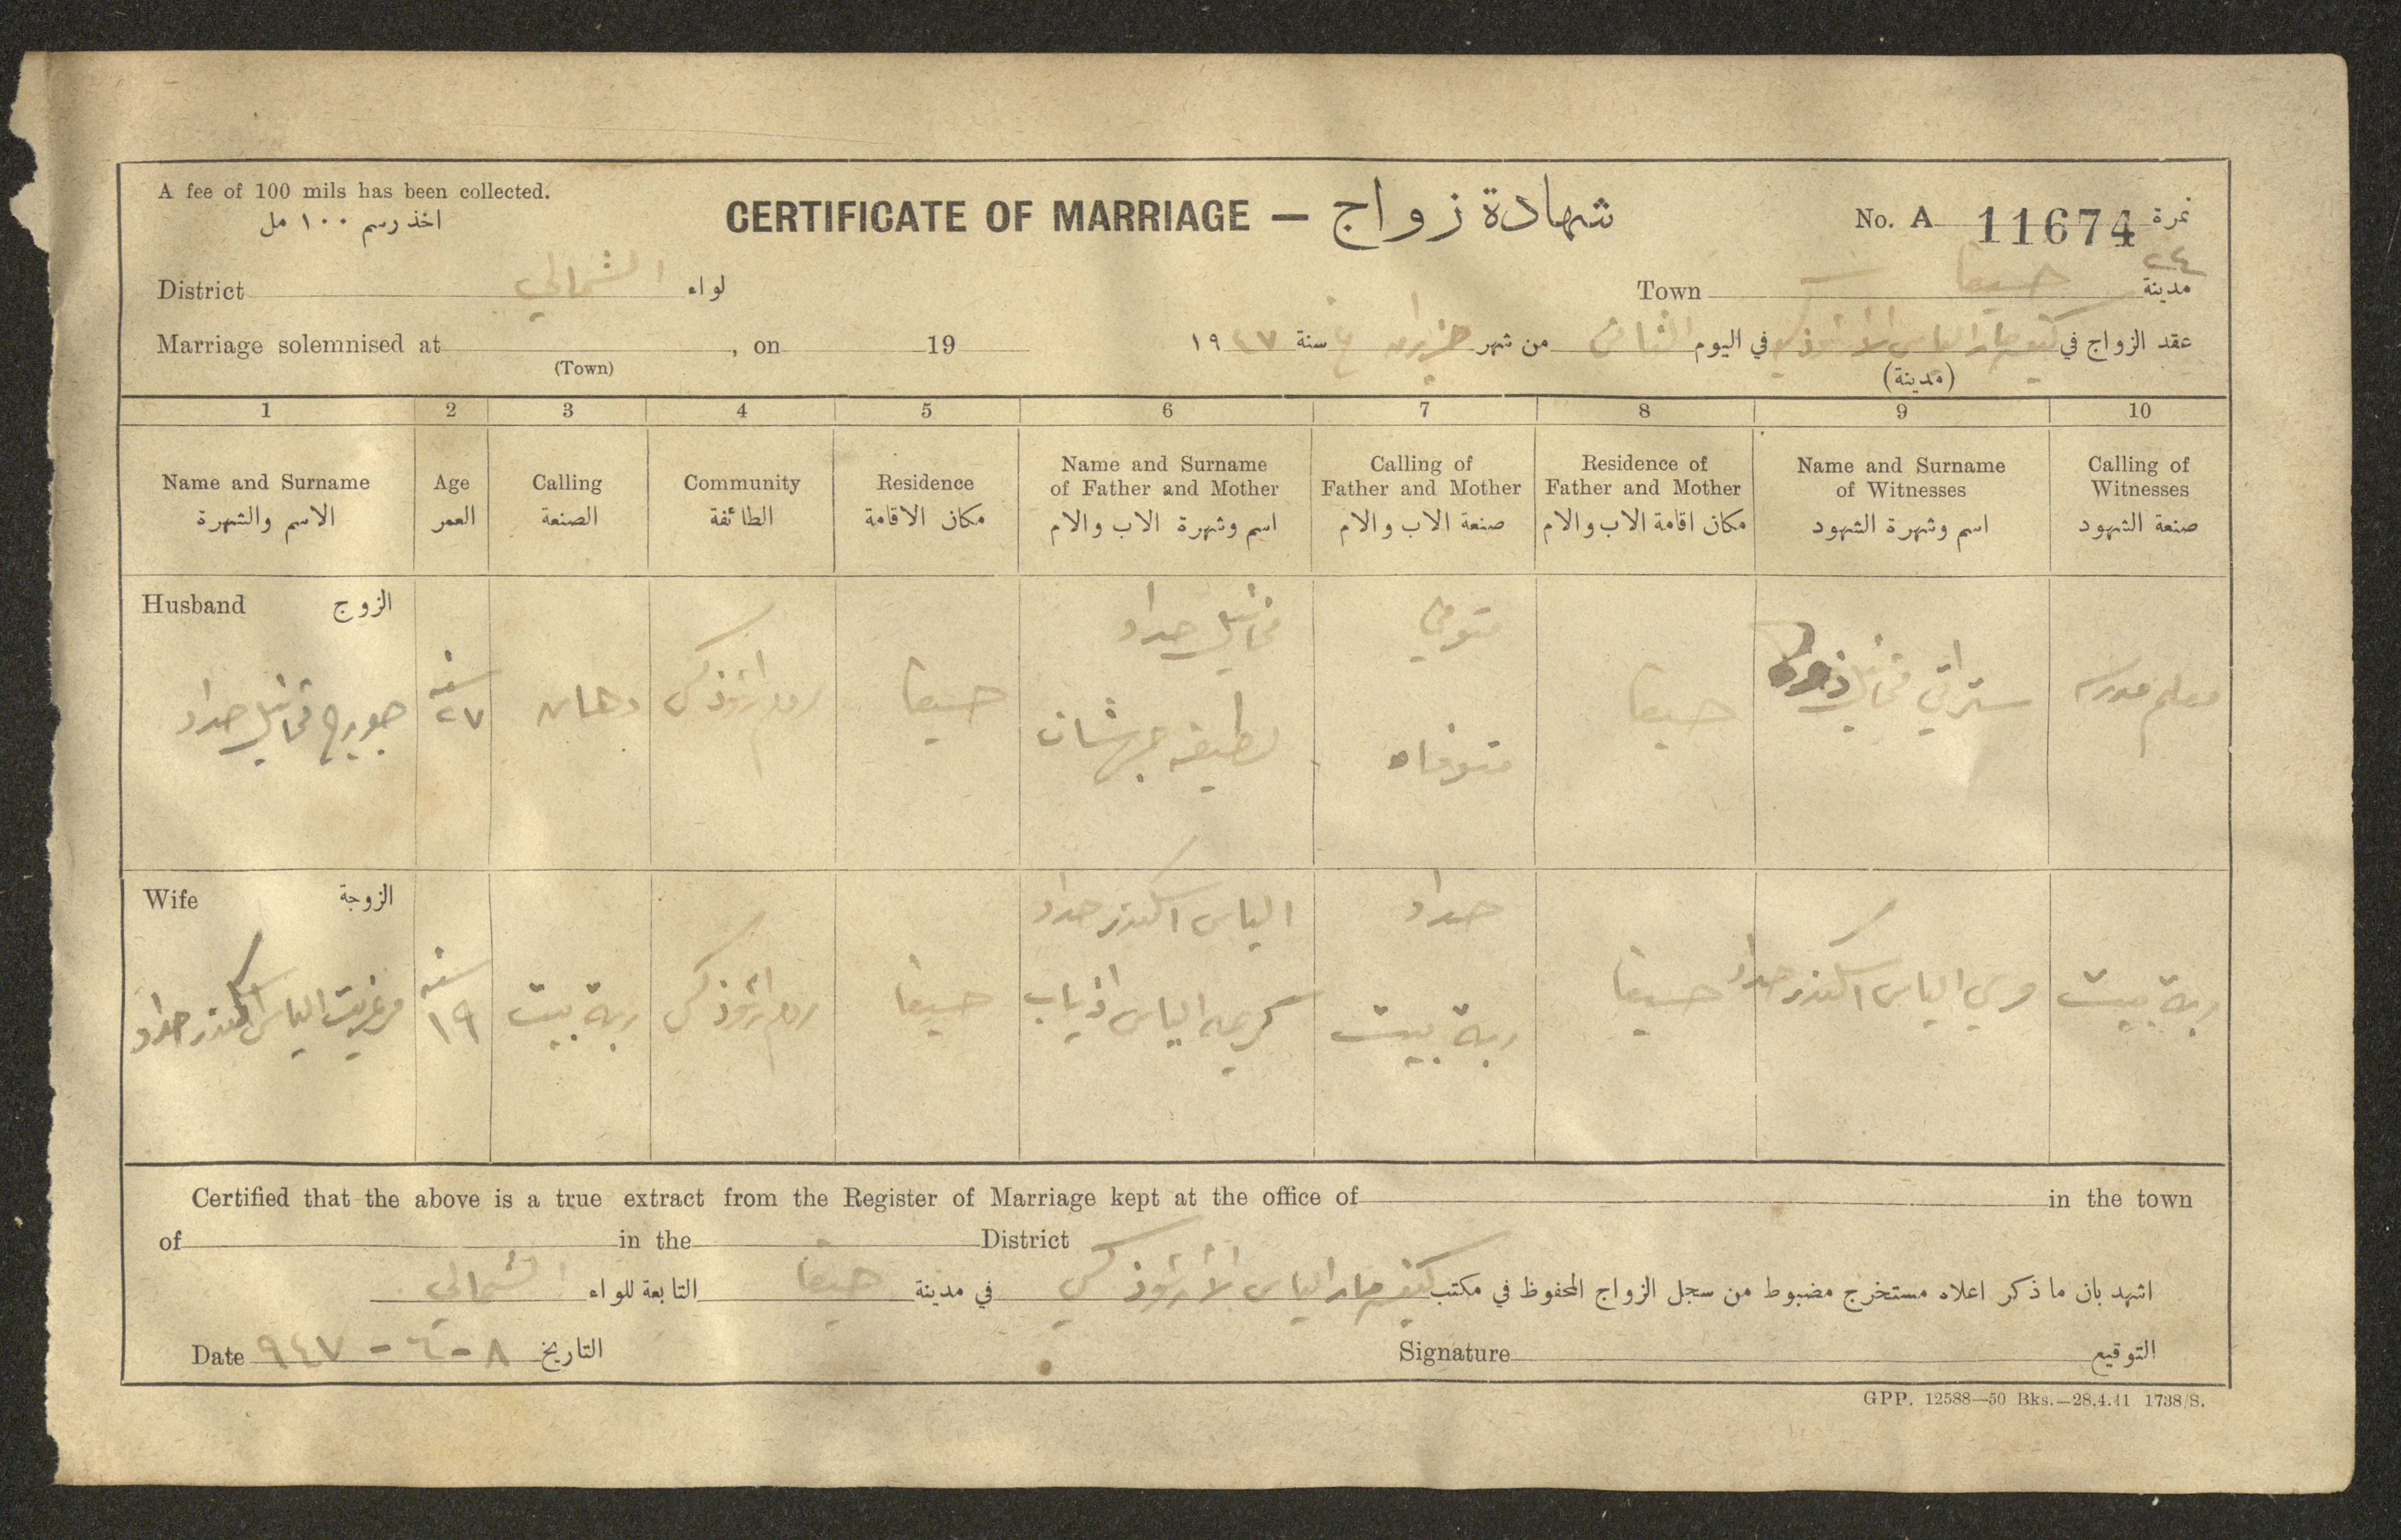 A fee of 100 mils has been collected.
اخذ رسم ١٠٠ مل
CERTIFICATE OF MARRIAGE — شهادة زواج
No. A 11674 نمرة
٢٤
District الشمالي لواء
Town حيفا مدينة
Marriage solemnised at , on 19
(Town)
عقد الزواج في كنيسة مار الياس الأرثوذكسية في اليوم الثامن من شهر حزيران سنة ١٩٤٧
(مدينة)
1 2 3 4 5 6 7 8 9 10
Name and Surname
الاسم والشهرة
Age
العمر
Calling
الصنعة
Community
الطائفة
Residence
مكان الاقامة
Name and Surname
of Father and Mother
اسم وشهرة الاب والام
Calling of
Father and Mother
صنعة الاب والام
Residence of
Father and Mother
مكان اقامة الاب والام
Name and Surname
of Witnesses
اسم وشهرة الشهود
Calling of
Witnesses
صنعة الشهود
Husband الزوج
جورج مخائيل حداد
سنة
٢٧
دهان
روم ارثوذكس
حيفا
مخائيل حداد
لطيفه جهشان
متوفي
متوفاه
حيفا
مخائيل
معلم مدرسه
Wife الزوجة
مرغريت الياس اسكندر حداد
سنة
١٩
ربة بيت
روم ارثوذكس
حيفا
الياس اسكندر حداد
كريمه الياس اذياب
حداد
ربة بيت
حيفا
الياس اسكندر حداد
ربة بيت
Certified that the above is a true extract from the Register of Marriage kept at the office of in the town
of in the District
اشهد بان ما ذكر اعلاه مستخرج مضبوط من سجل الزواج المحفوظ في مكتب كنيسة مار الياس الأرثوذكسي في مدينة حيفا التابعة للواء الشمالي
Date ٨ - ٦ - ٩٤٧ التاريخ
Signature التوقيع
GPP. 12588—50 Bks.—28.4.41 1738/S.